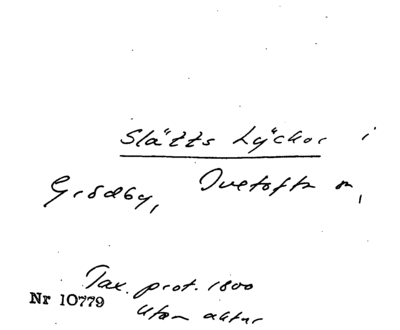 Slätts Lyckor i
Grödby, Tvetofta n,
Tax. prot. 1800
Nr 10779
utan aktnr